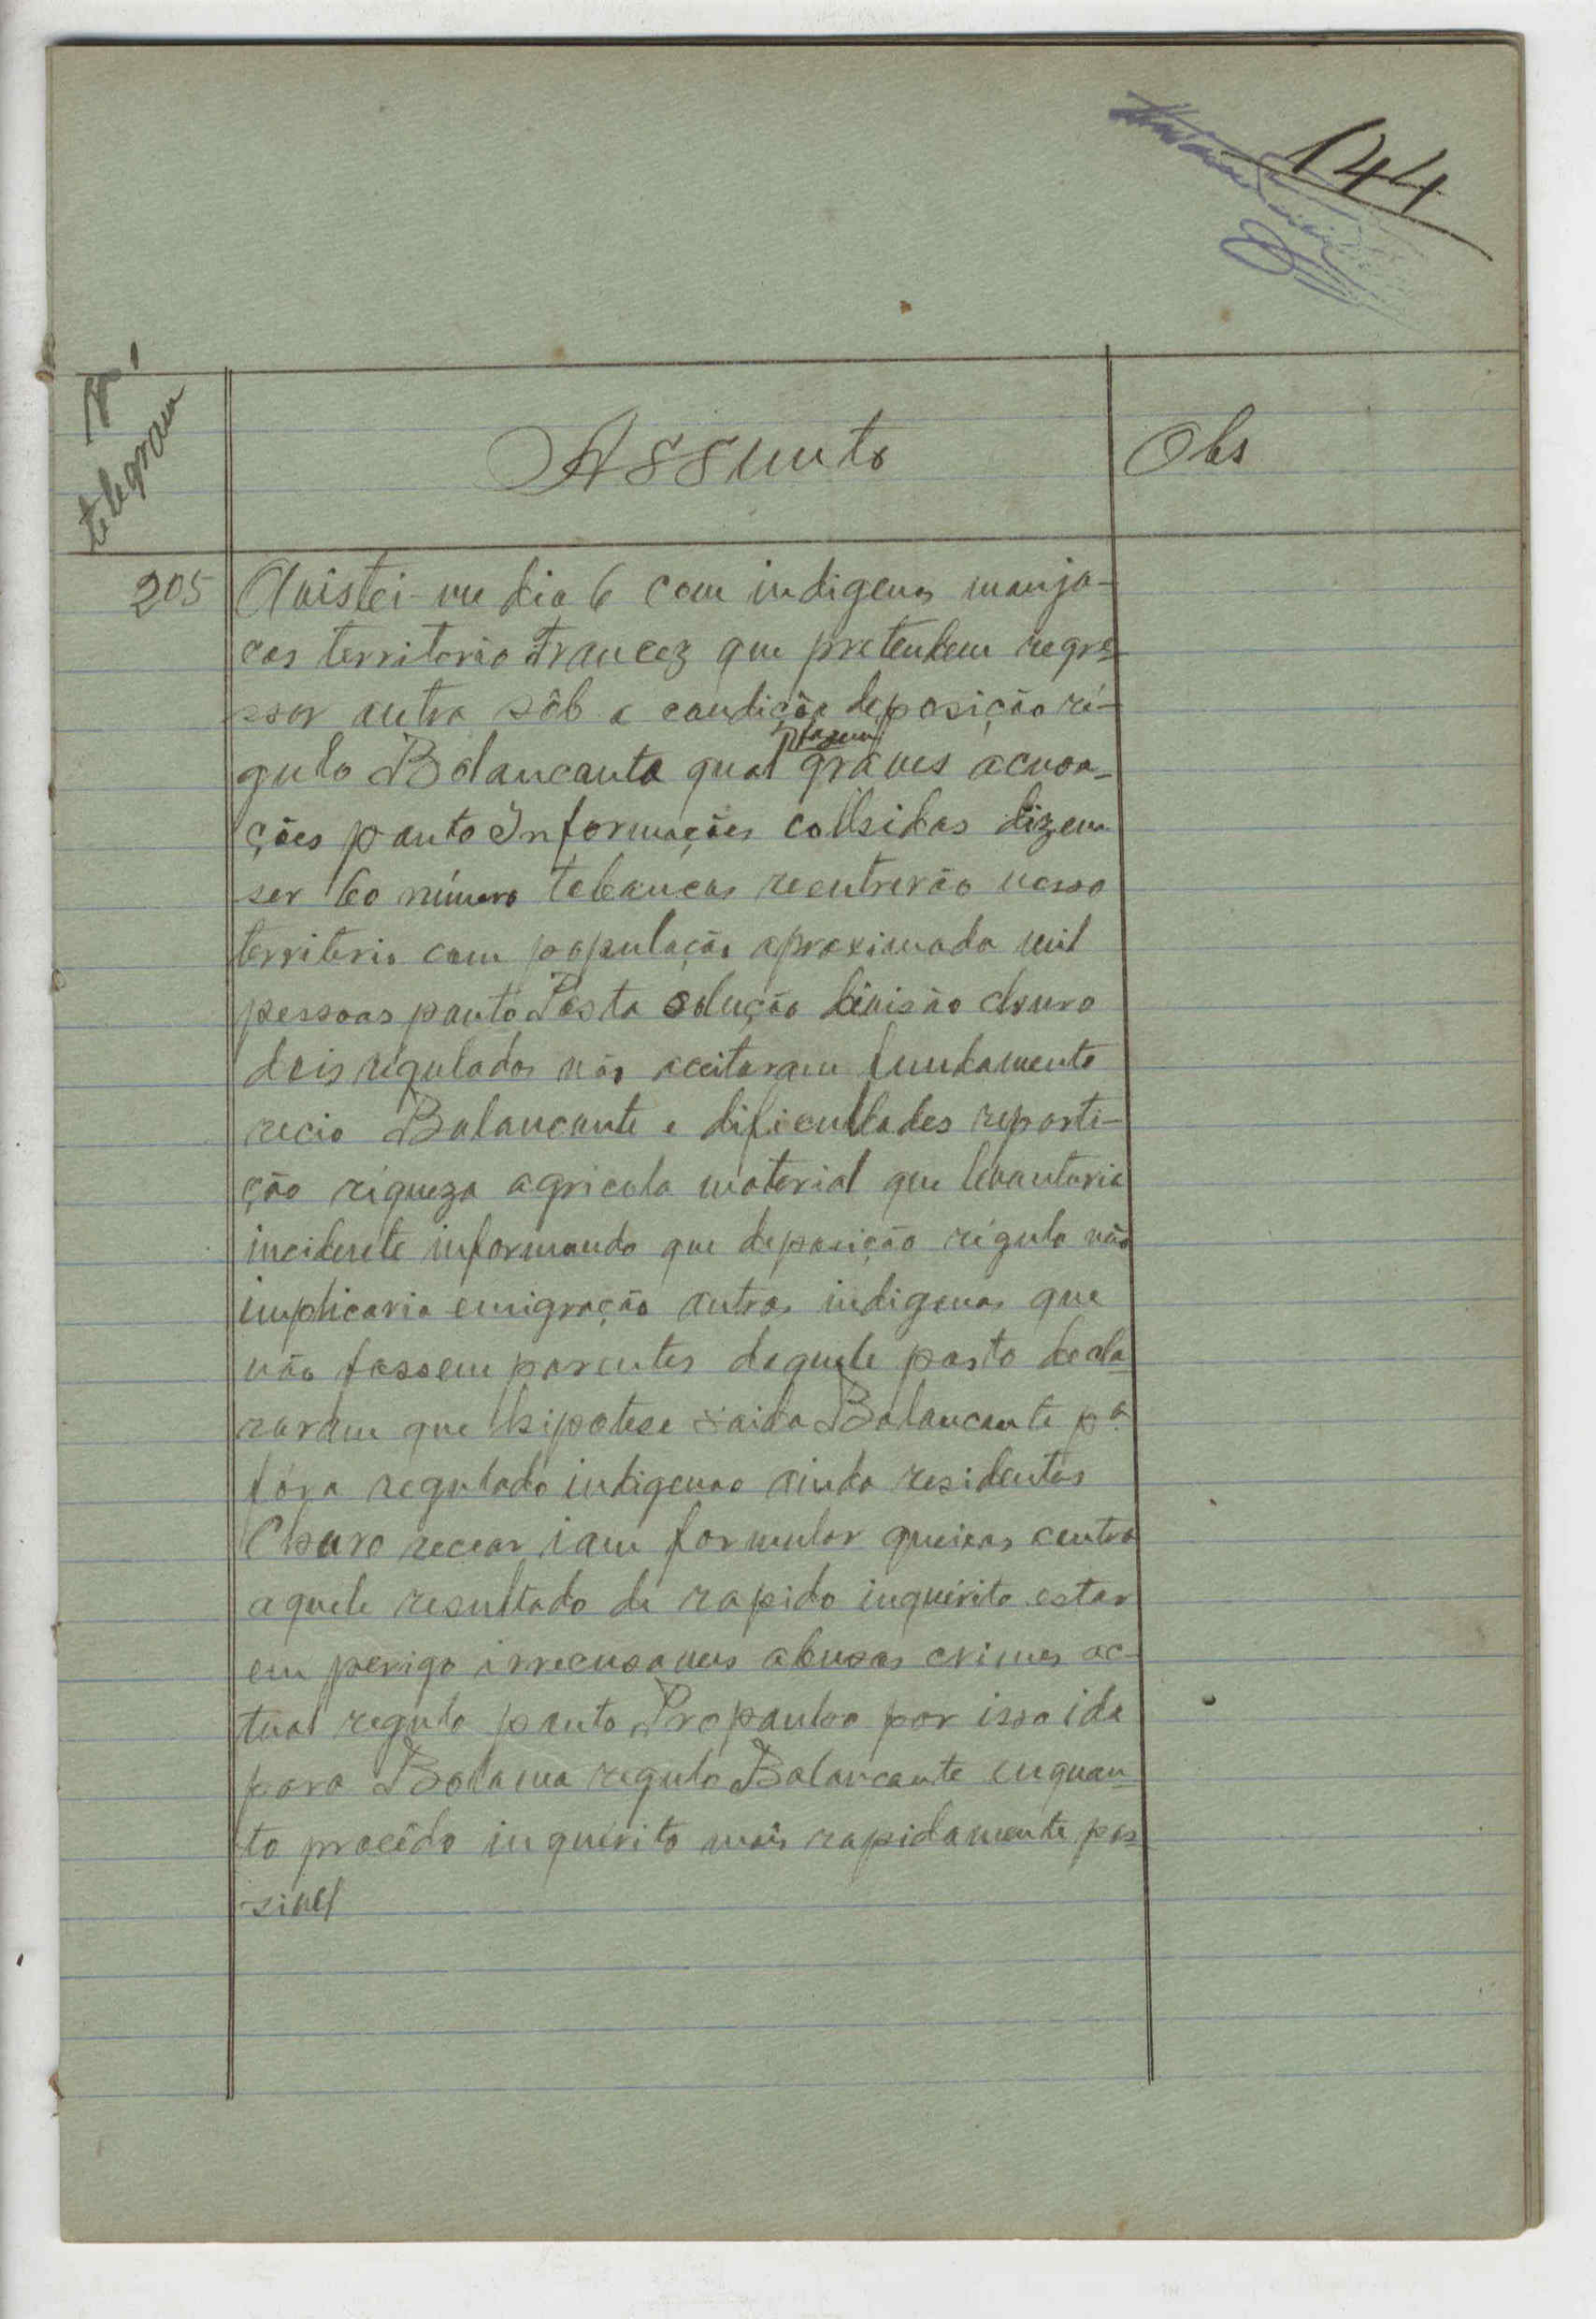 144
N.º telegram
Assunto
Obs
205
Avistei-me dia 6 com indigenas manja-
cos territorio Francez que pretendem regre-
ssar outra sôb a condição deposição ré-
gulo Balancanta qual fazem graves acusa-
ções ponto Informações colhidas dizem
ser 60 número tabancas reentrarão nosso
territorio com população aproximada mil
pessoas ponto Posta solução divisão churo
dois régulados não aceitaram fundamento
recio Balancante e dificuldades reparti-
ção riqueza agricola material que levantaria
incidente informando que deposição régulo não
implicaria emigração outros indigenas que
não fossem parentes daquele ponto decla
raram que hipotese saida Balancante pª
fóra regulado indigenas ainda residentes
Churo recear iam formular queixas contra
aquele resultado de rapido inquérito estar
em perigo irrecusaveis abusos crimes ac-
tual regulo ponto Proponho por isso ida
para Bolama regulo Balancante enquan-
to procêdo inquérito mais rapidamente pos-
sivel